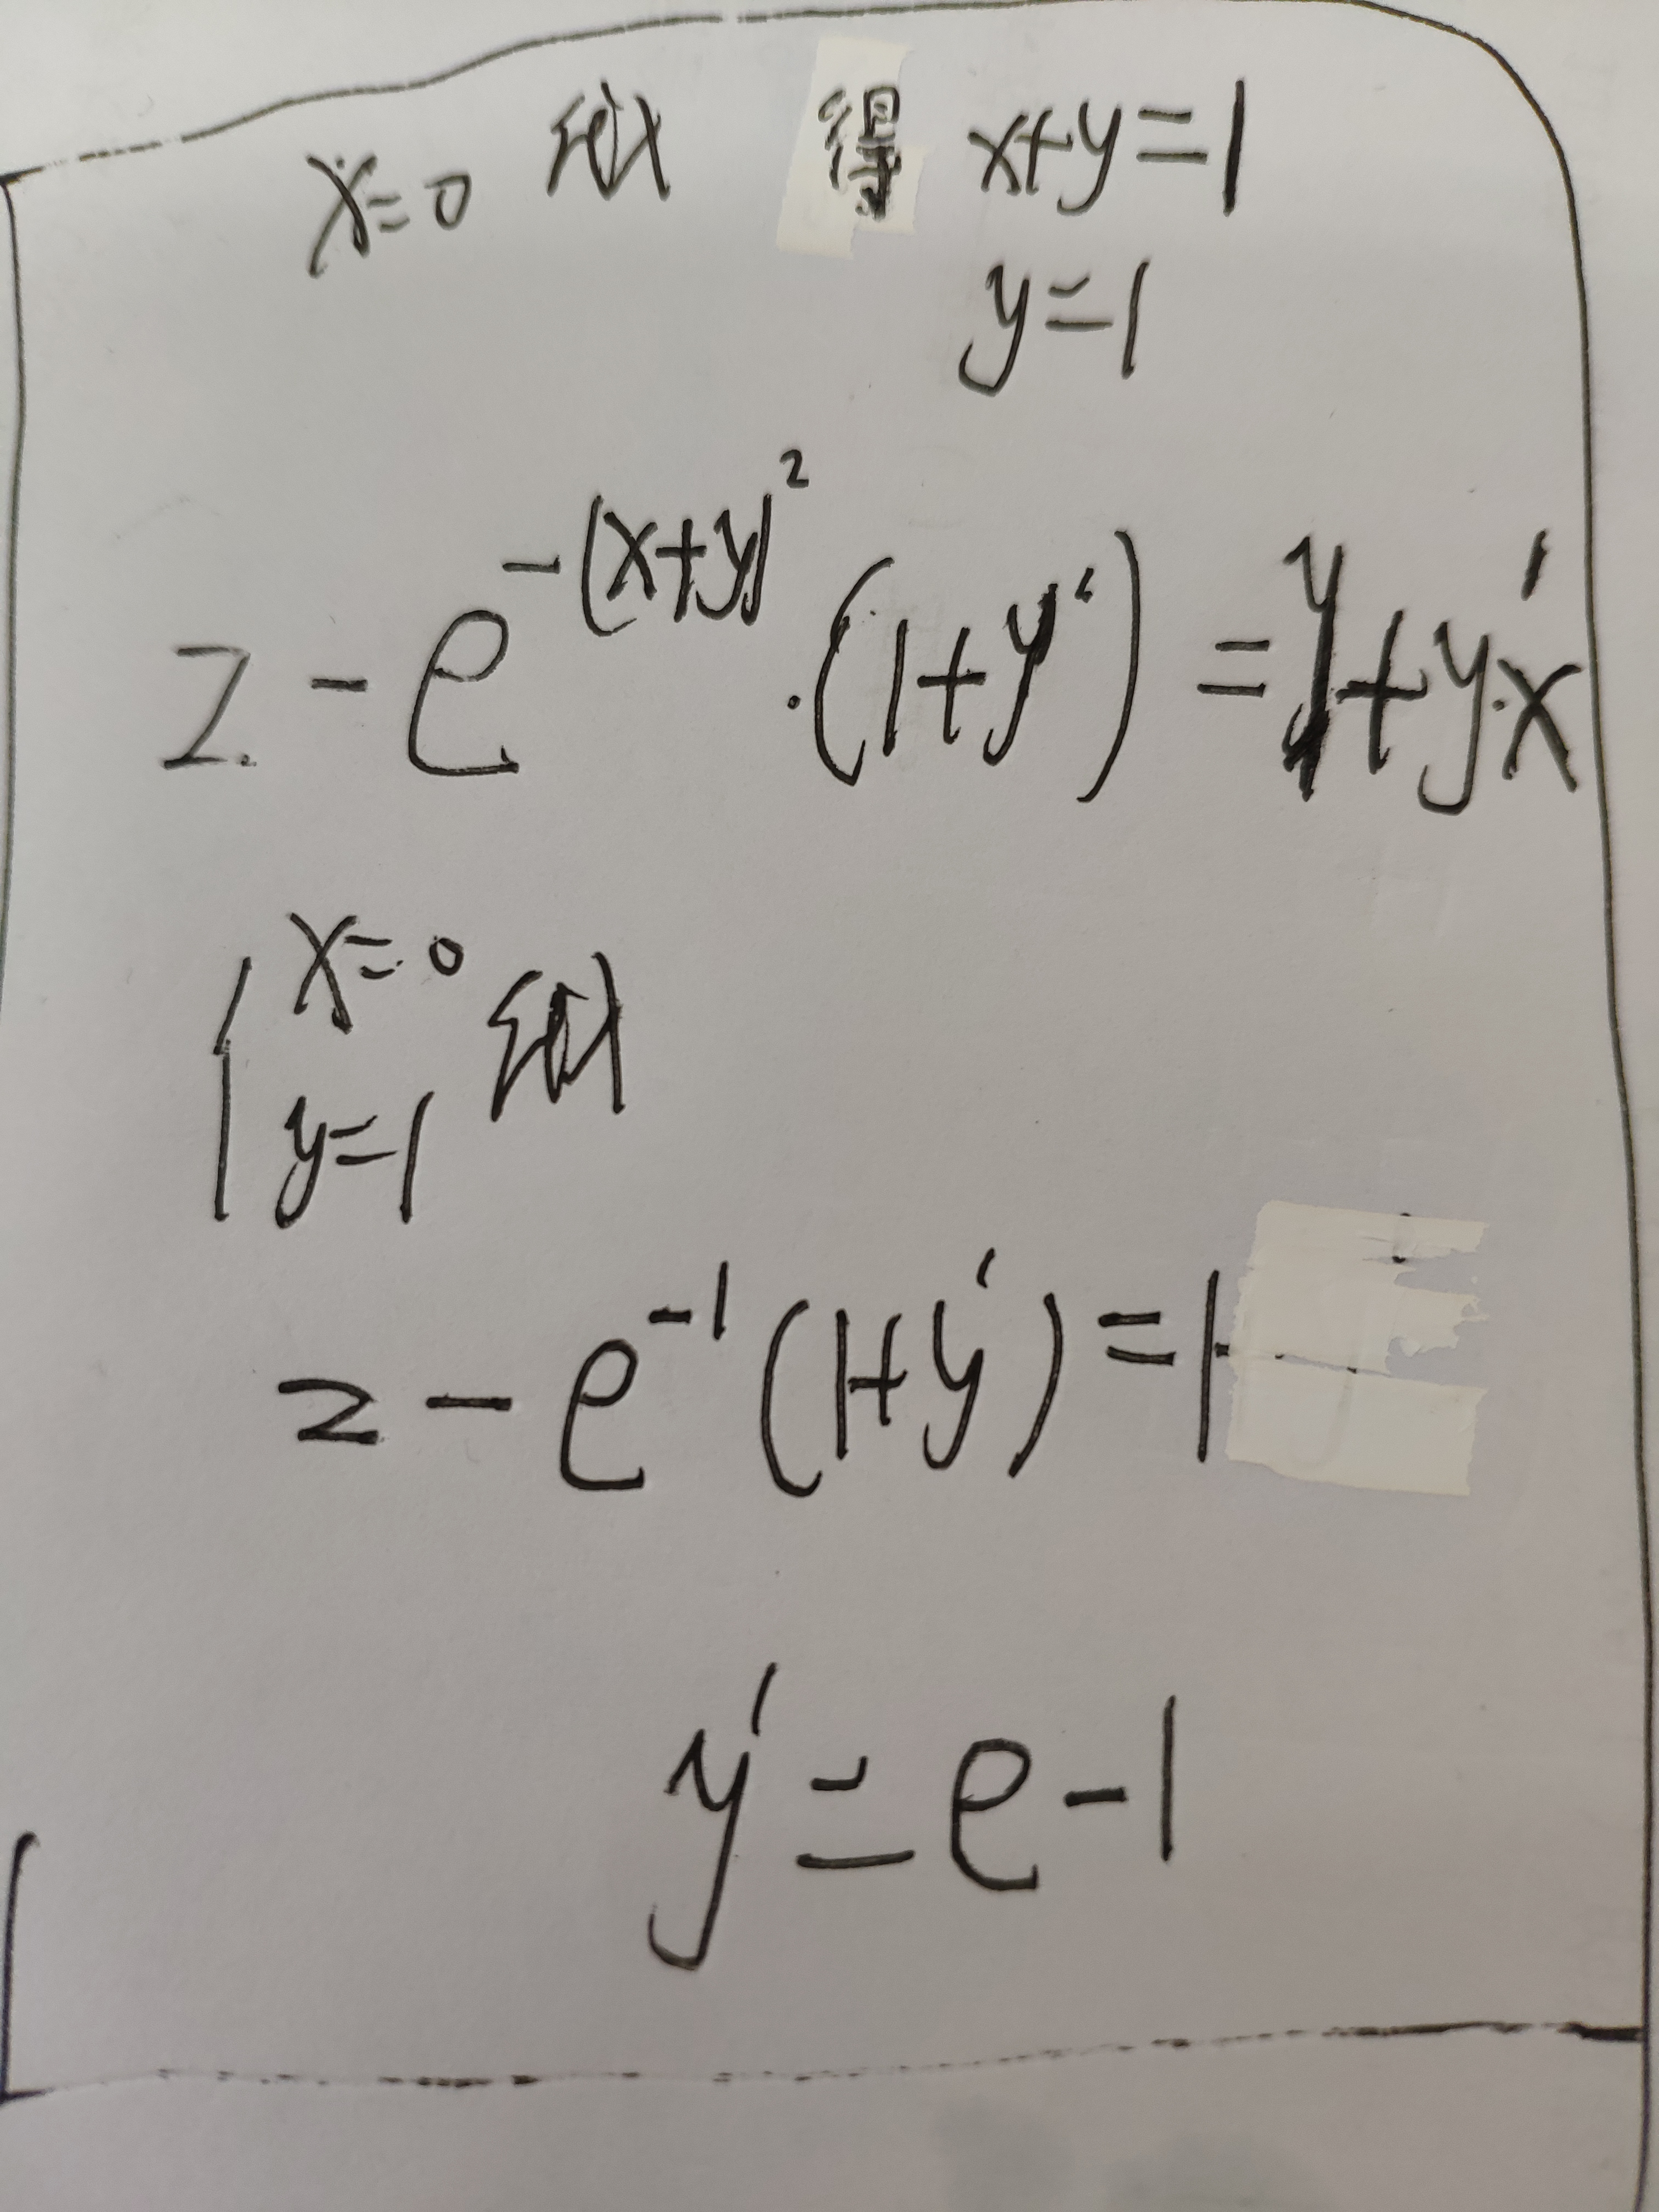 x=0 代入 得 x+y=1
y=1
2-e^{-(x+y)^2}·(1+y')=y+y'·x
{x=0
y=1 代入
2-e^{-1}(1+y')=1
y'=e-1